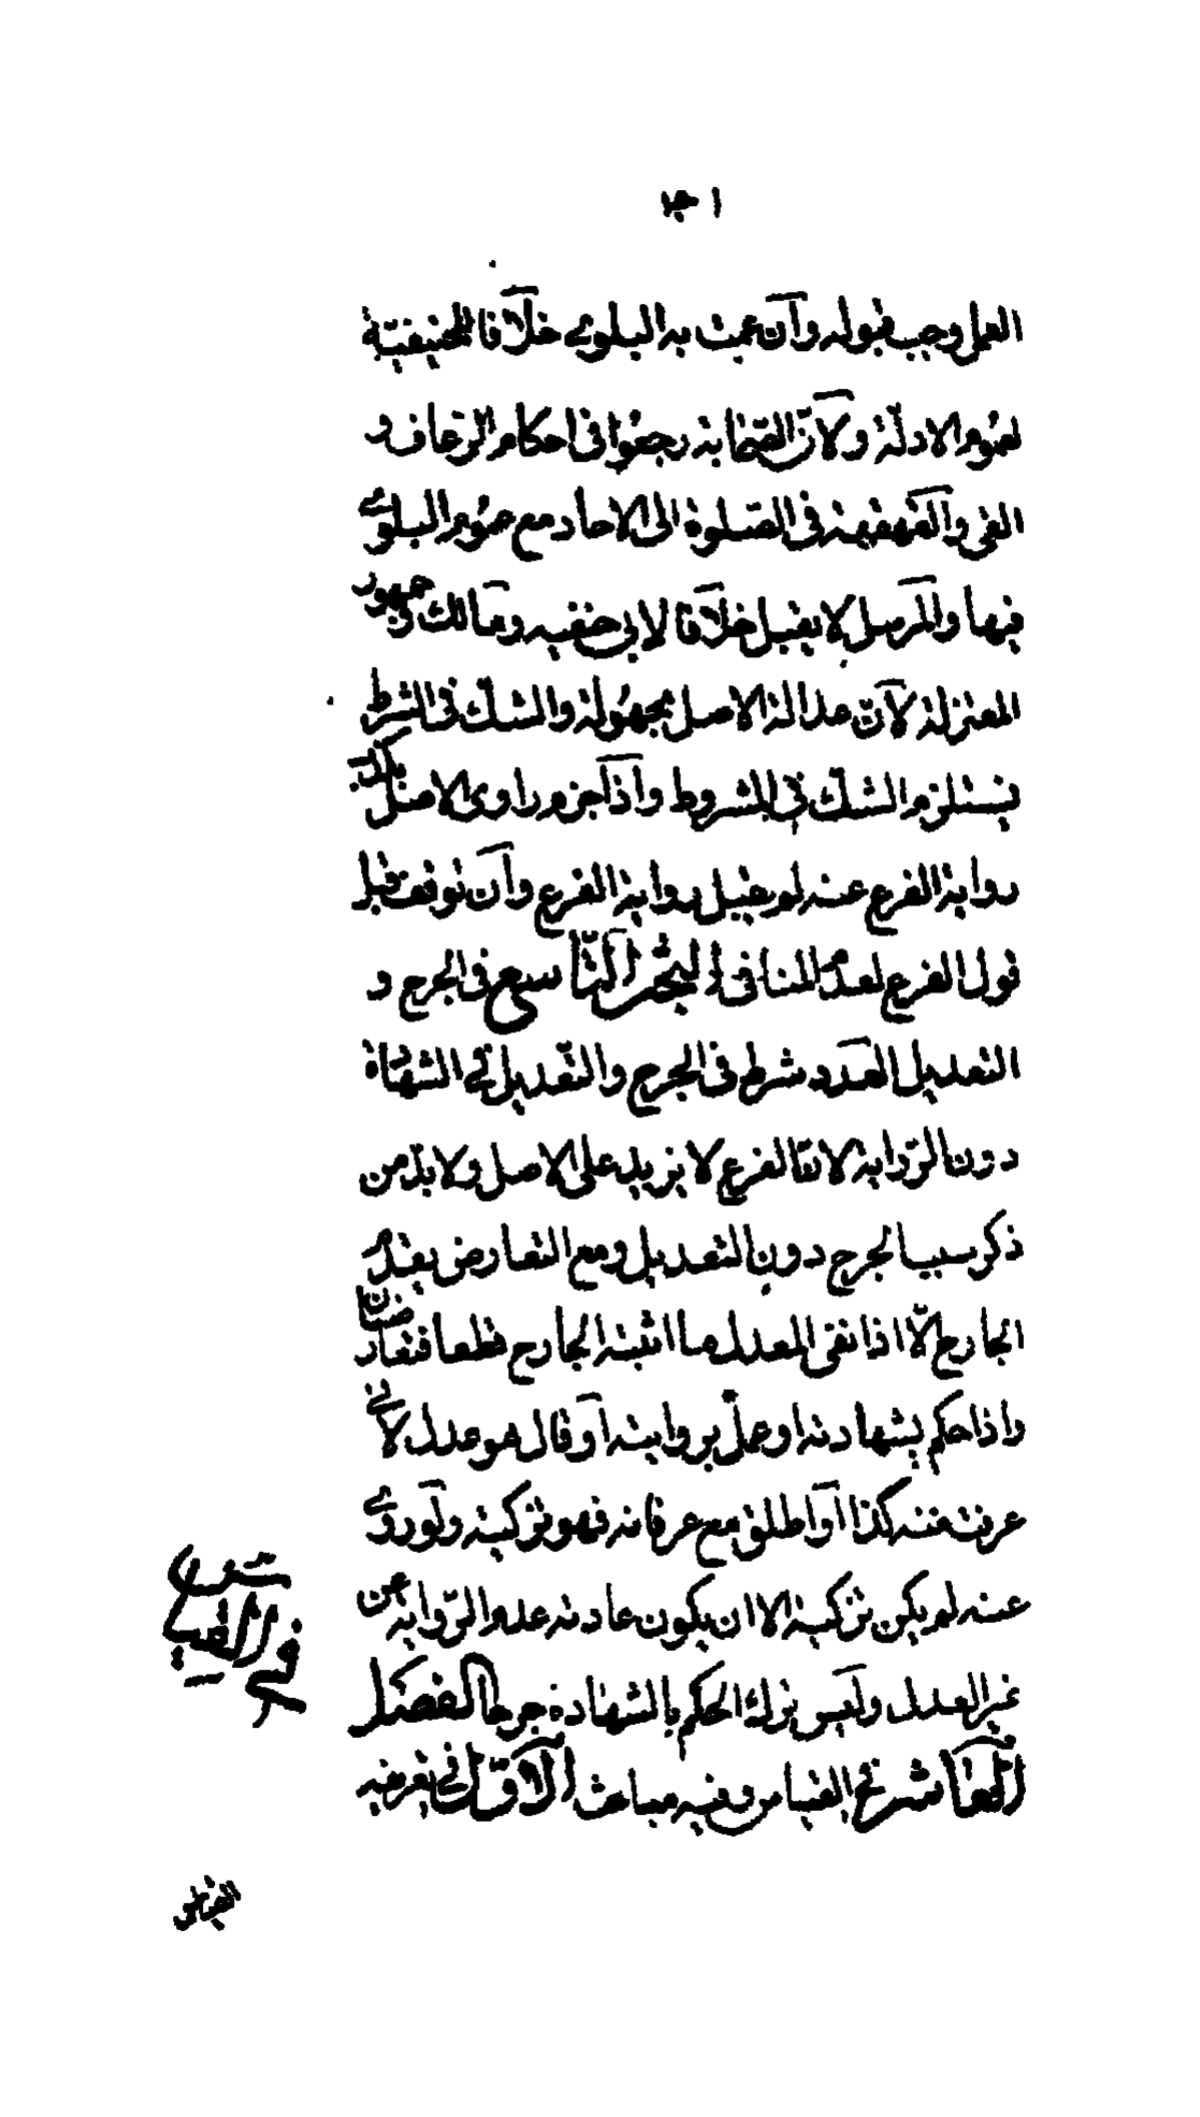 العمل وجب قبوله وان عمت به البلوى خلافا للحنيفية
لعموم الادلة ولان الصحابة رجعوا فى احكام الرعاف و
القى والقهقهة فى الصلوة الى الاحاد مع عموم البلوى
فيها والمرسل لا يقبل خلافا لابى حنفيه ومالك وجمهور
المعتزلة لان عدالة الاصل مجهولة والشك فى الشرط
يستلزم الشك فى المشروط واذا جزم راوى الاصل بكذب
رواية الفرع عنه لم يقبل رواية الفرع وان توقف قبل
قول الفرع لعدم المنافى البحث التاسع فى الجرح و
التعديل العدد شرط فى الجرح والتعديل فى الشهادة
دون الرواية لان الفرع لا يزيد على الاصل ولا بد من
ذكر سبب الجرح دون التعديل ومع التعارض يقدم
الجارح الا اذا نفى المعدل ما اثبته الجارح قطعا فتعارضان
واذا حكم بشهادته او عمل بروايته او قال هو عدل لانى
عرفت منه كذا او اطلق مع عرفانه فهو تزكية ولو روى
عنه لم يكن تزكية الا ان يكون عادته عدم الرواية عن
غير العدل وليس ترك الحكم بالشهادة جرحا الفصل
العاشر فى القياس وفيه مباحث الاول فى تعريفه
فى القياس
القياس